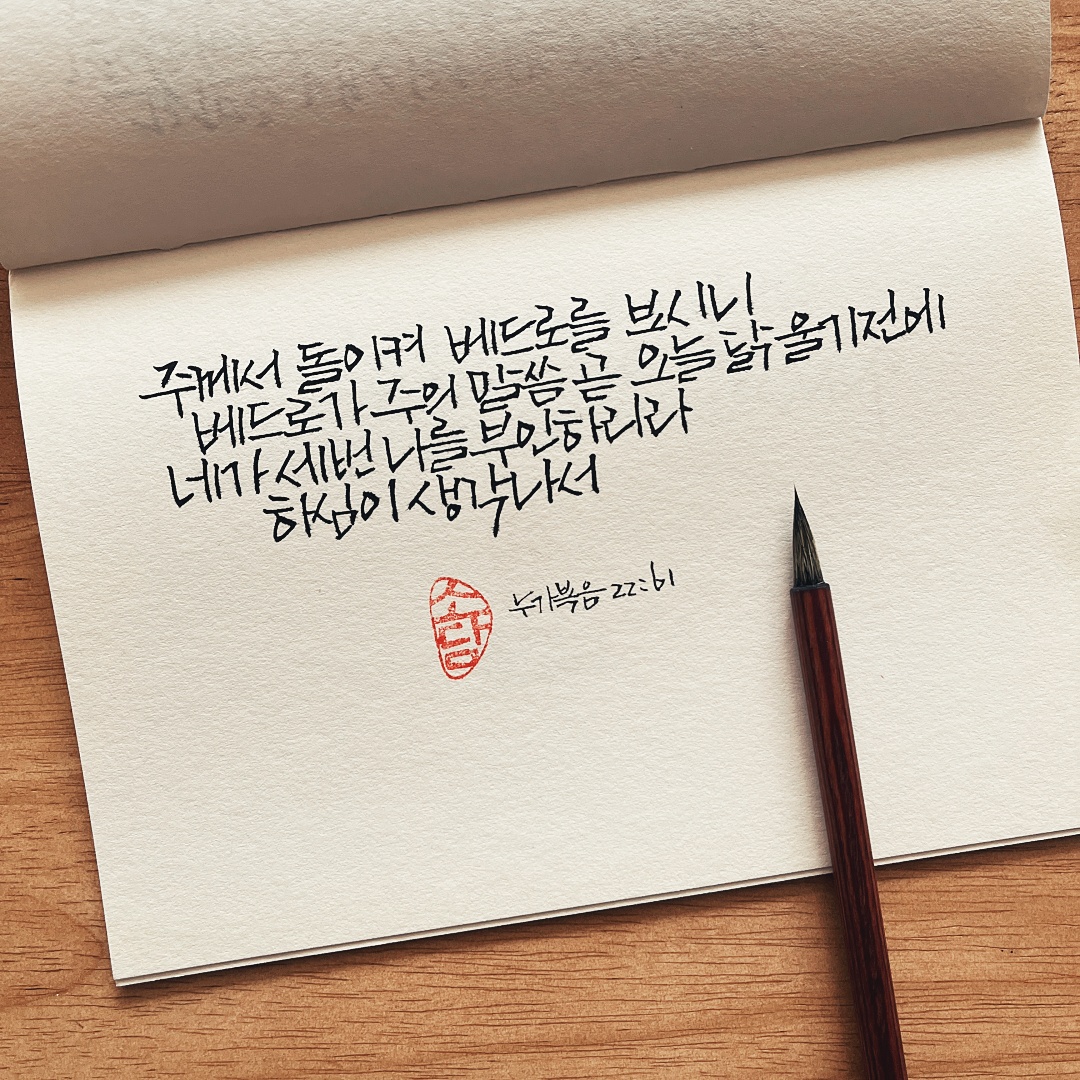 주께서 돌이켜 베드로를 보시니
베드로가 주의 말씀 곧 오늘 닭 울기전에
네가 세번 나를 부인하리라
하심이 생각나서
누가복음 22:61
소담